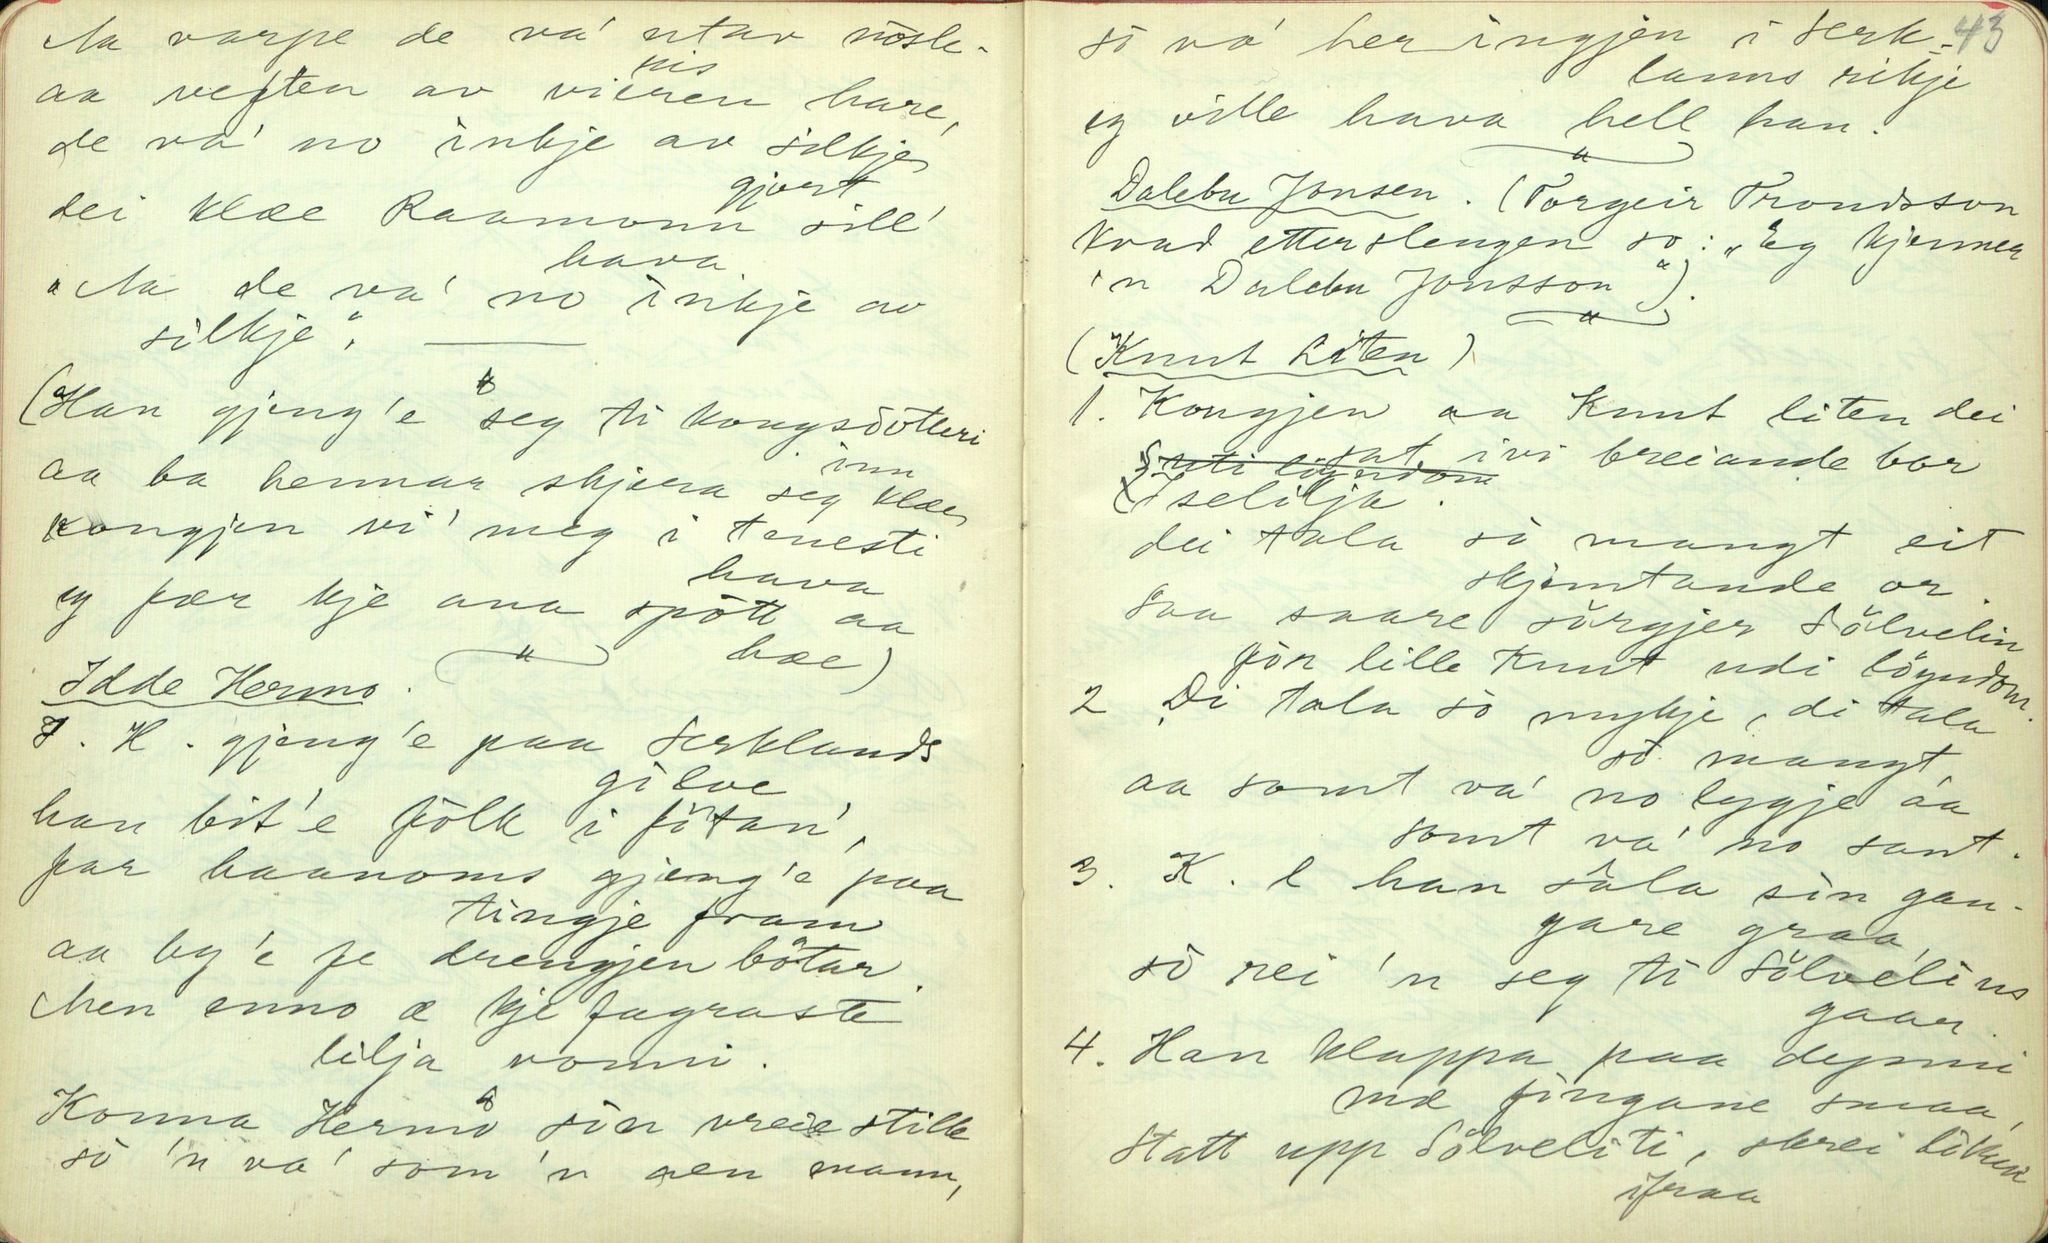 Aa varpe de va' utav nosle-
pis
aa veften av vieren hare,
de va' no inkje av silkje
gjort
dei klæe Raamonn sill'
hava
"Aa de va' no inkje av
silkje".
(Han gjeng'e seg ti kongsdotteri
inn
aa ba hennar skjera seg klæe,
kongjen vi' meg i tenesti
hava
eg fær kje ana spott aa
hæ)
Idde Hermo.
I. H. gjeng'e paa Serklands
gilve
han bit'e folk i fotan',
far haanoms gjeng'e paa
tingje fram
aa by'e fe drengjen bøtar.
Men enno æ kje fagraste
lilja vonni.
Konna Hermo sin vreie stille
so 'n va' som 'n aen mann,
43
so va' her ingjen i Serk-
lanns rikje
eg ville hava hell han.
Dalebu Jonsen. (Torgeir Trondsson
kvad etterslengen so: "Eg kjenner
'n Dalebu Jonsson").
(Knut Liten)
1. Kongjen aa Knut liten dei
sat ivi breiande bor
uti løyndom
Iselilja.
dei tala so mangt eit
skjemtande or.
Saa saare sørgjer Sølvelin
for lille Knut udi løyndom.
2 Di tala so mykje, di tala
so mangt
aa somt va' no lygje aa
somt va' no sant.
3. K. l han sala sin gan-
gare graa,
so rei 'n seg ti Sølvelins
gaar.
4. Han klappa paa dynni
mæ fingane smaa,
statt upp Sølveliti, skrei lokun
ifraa